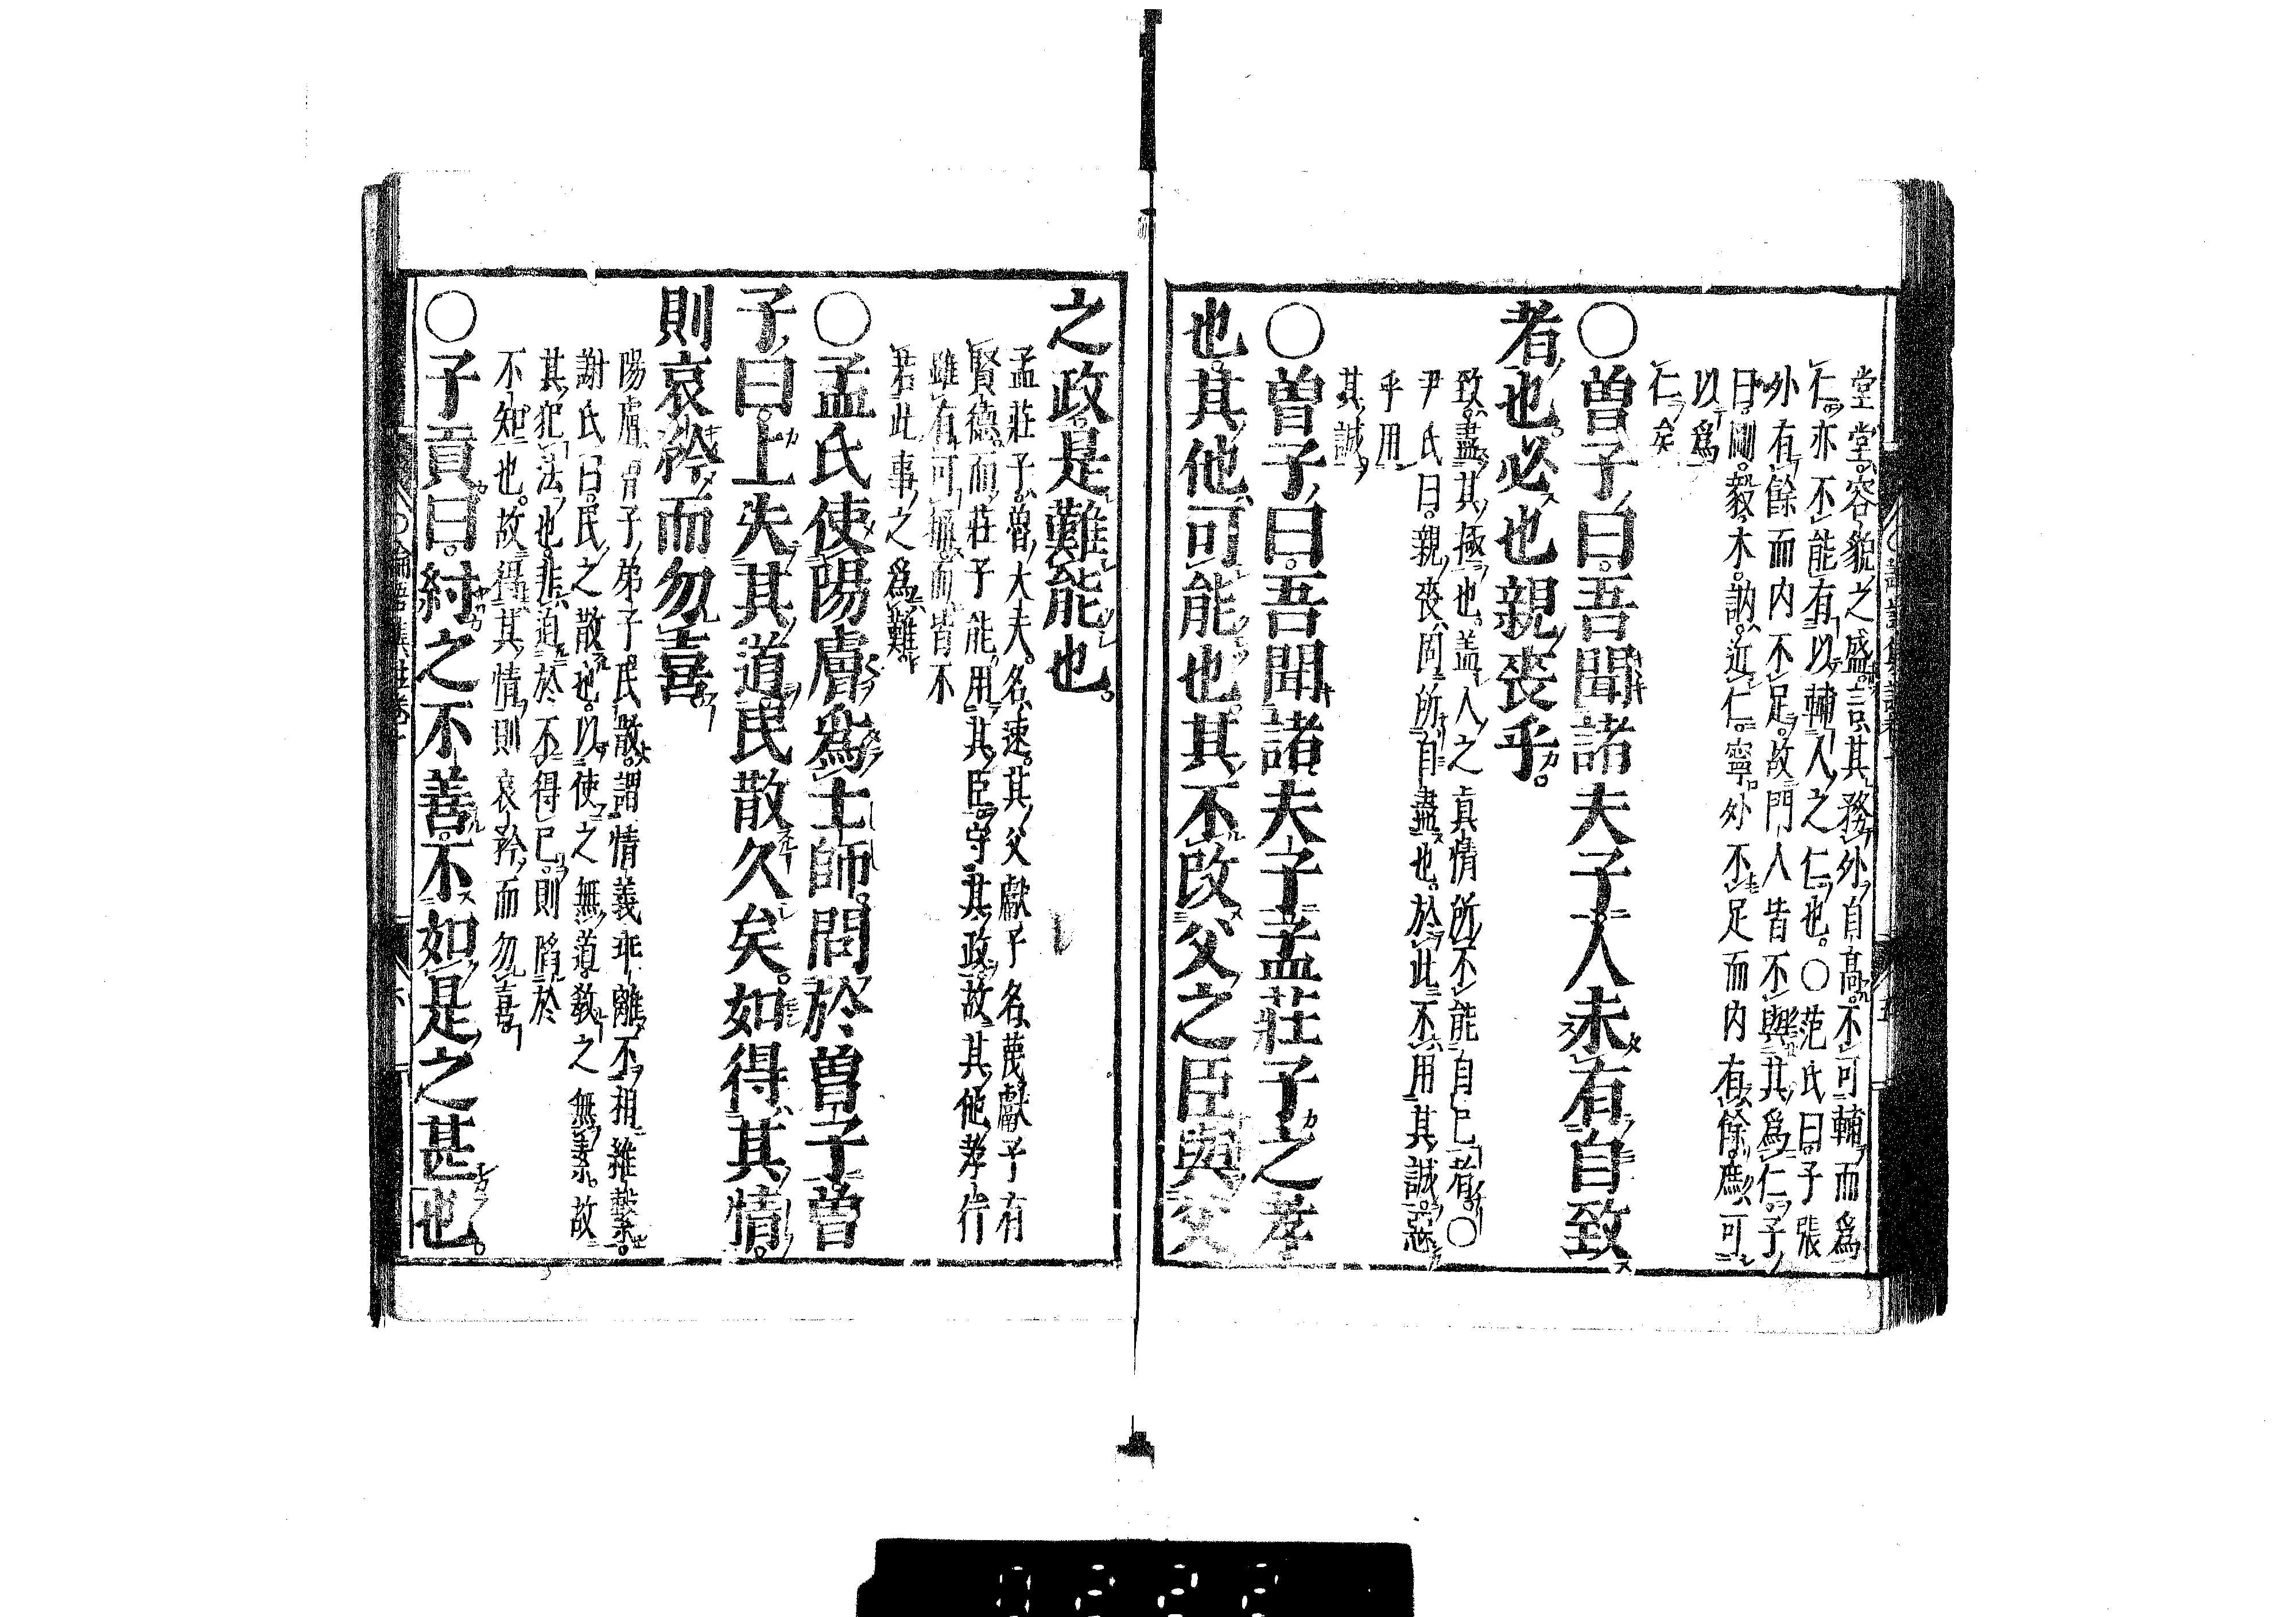 堂堂。容貌之盛。言其務外自高。不可輔而爲
仁。亦不能有以輔人之仁也。○范氏曰。子張
外有餘而内不足。故門人皆不與其爲仁。子
曰。剛毅木訥。近仁。寧外不足而内有餘。庶可
以爲
仁矣
○曾子曰。吾聞諸夫子人未有自致
者也。必也親喪乎。
致。盡其極也。盖人之真情所不能自已者。○
尹氏曰。親喪固所自盡也。於此不用其誠。惡
乎用
其誠。
○曾子曰。吾聞諸夫子孟莊子之孝
也。其他可能也。其不改父之臣與父
之政。是難能也。
孟莊子。魯大夫。名速。其父獻子名蔑。獻子有
賢德。而莊子能用其臣。守其政。故其他孝行
雖有可稱。而皆不
若此事之爲難。
○孟氏使陽膚爲士師。問於曾子。曾
子曰。上失其道。民散久矣。如得其情。
則哀矜而勿喜。
陽膚。曾子弟子。民散。謂情義乖離不相維繫。
謝氏曰。民之散也。以使之無道。教之無素。故
其犯法也。非迫於不得已。則陷於
不知也。故得其情。則哀矜而勿喜。
○子貢曰。紂之不善。不如是之甚也。